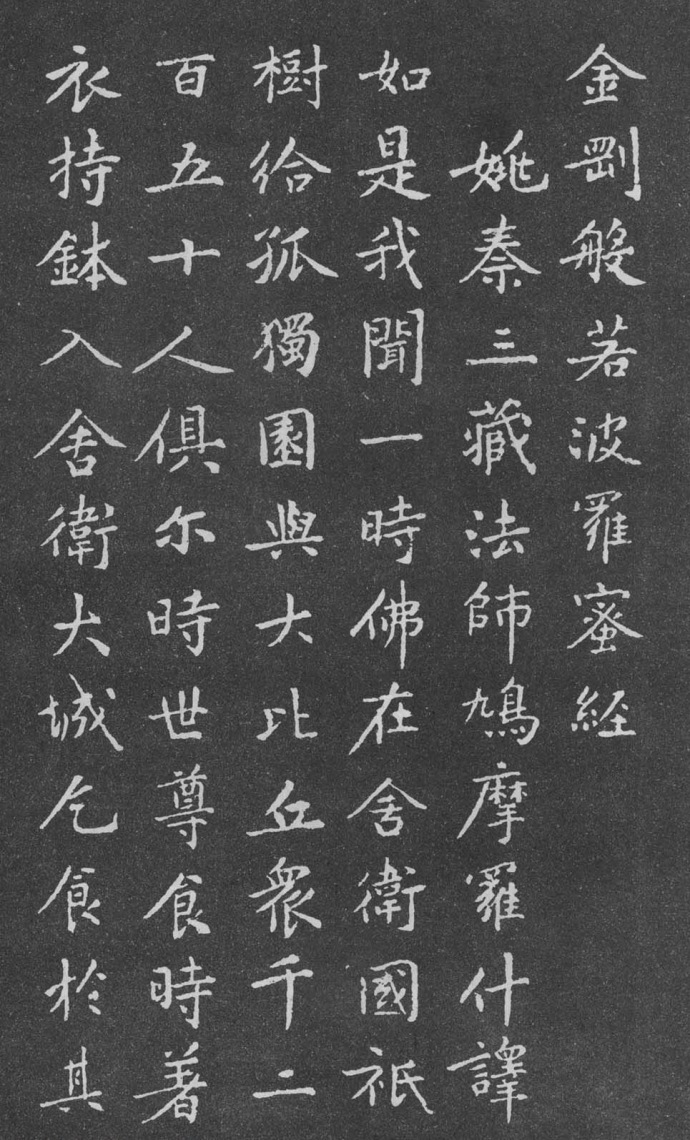 金剛般若波羅蜜經
姚秦三藏法師鳩摩羅什譯
如是我聞一時佛在舍衛國祇
樹給孤獨園與大比丘眾千二
百五十人俱尒時世尊食時著
衣持鉢入舍衛大城乞食於其